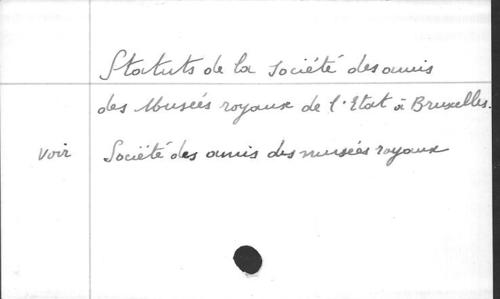 Statuts de la Société des amis
des Musées royaux de l'Etat à Bruxelles.
voir Société des amis des musées royaux